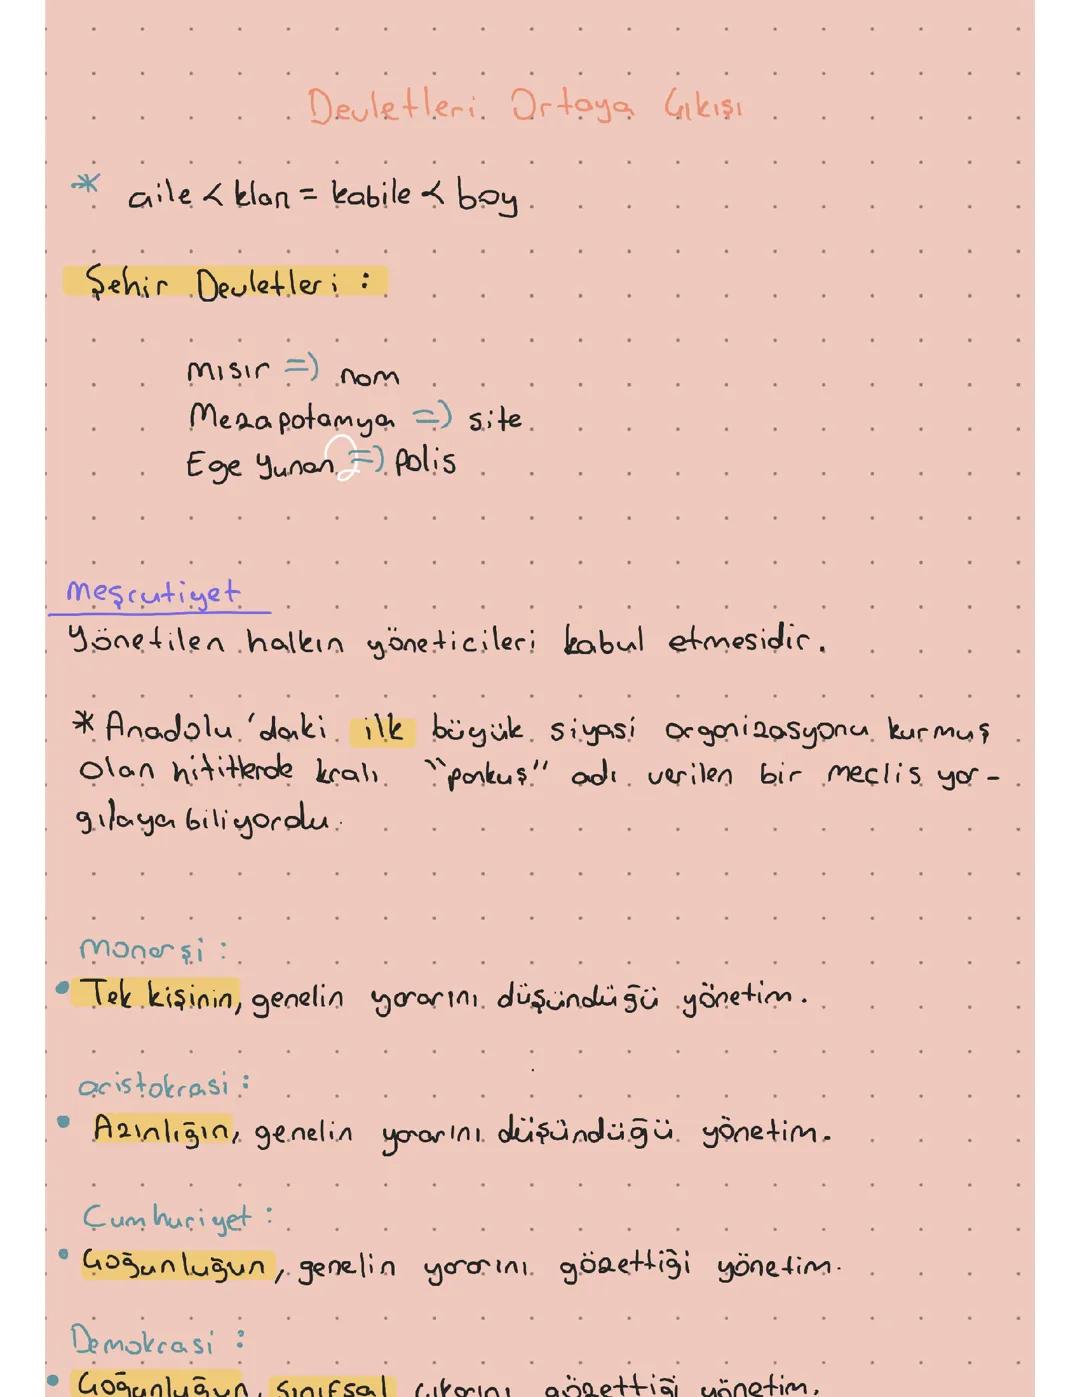 Devletleri Ortaya Çıkışı
* aile < klan = kabile < boy
Şehir Devletleri :
Mısır => nom
Mezapotamya => site
Ege Yunan => Polis
Meşrutiyet
Yönetilen halkın yöneticileri kabul etmesidir.
* Anadolu'daki ilk büyük siyasi organizasyonu kurmuş
olan hititlerde kralı "pankuş" adı verilen bir meclis yar-
gılaya biliyordu.
Monarşi :
• Tek kişinin, genelin yararını düşündüğü yönetim.
aristokrasi :
• Azınlığın, genelin yararını düşündüğü yönetim.
Cumhuriyet :
• Çoğunluğun, genelin yararını gözettiği yönetim.
Demokrasi :
• Çoğunluğun, sınıfsal çıkarını gözettiği yönetim.